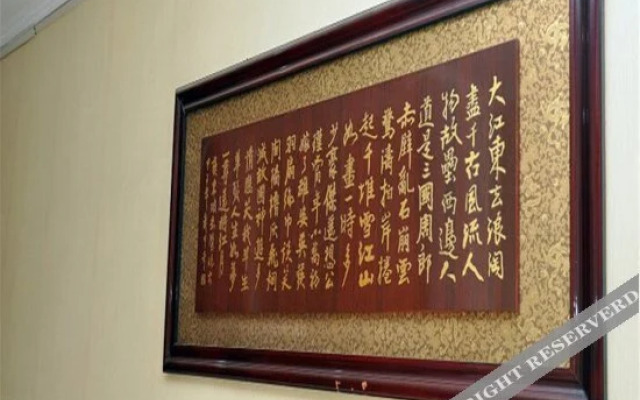 大江東去浪陶
盡千古風流人
物故壘西邊人
道是三國周郎
赤壁亂石崩雲
驚濤拍岸捲
起千堆雪江山
如畫一時多
少豪傑遙想公
瑾當年小喬初
嫁了雄姿英發
羽扇綸巾談笑
間檣櫓灰飛煙
滅故國神遊多
情應笑我早生
華髮人生如夢
RIGHT RESERVERD